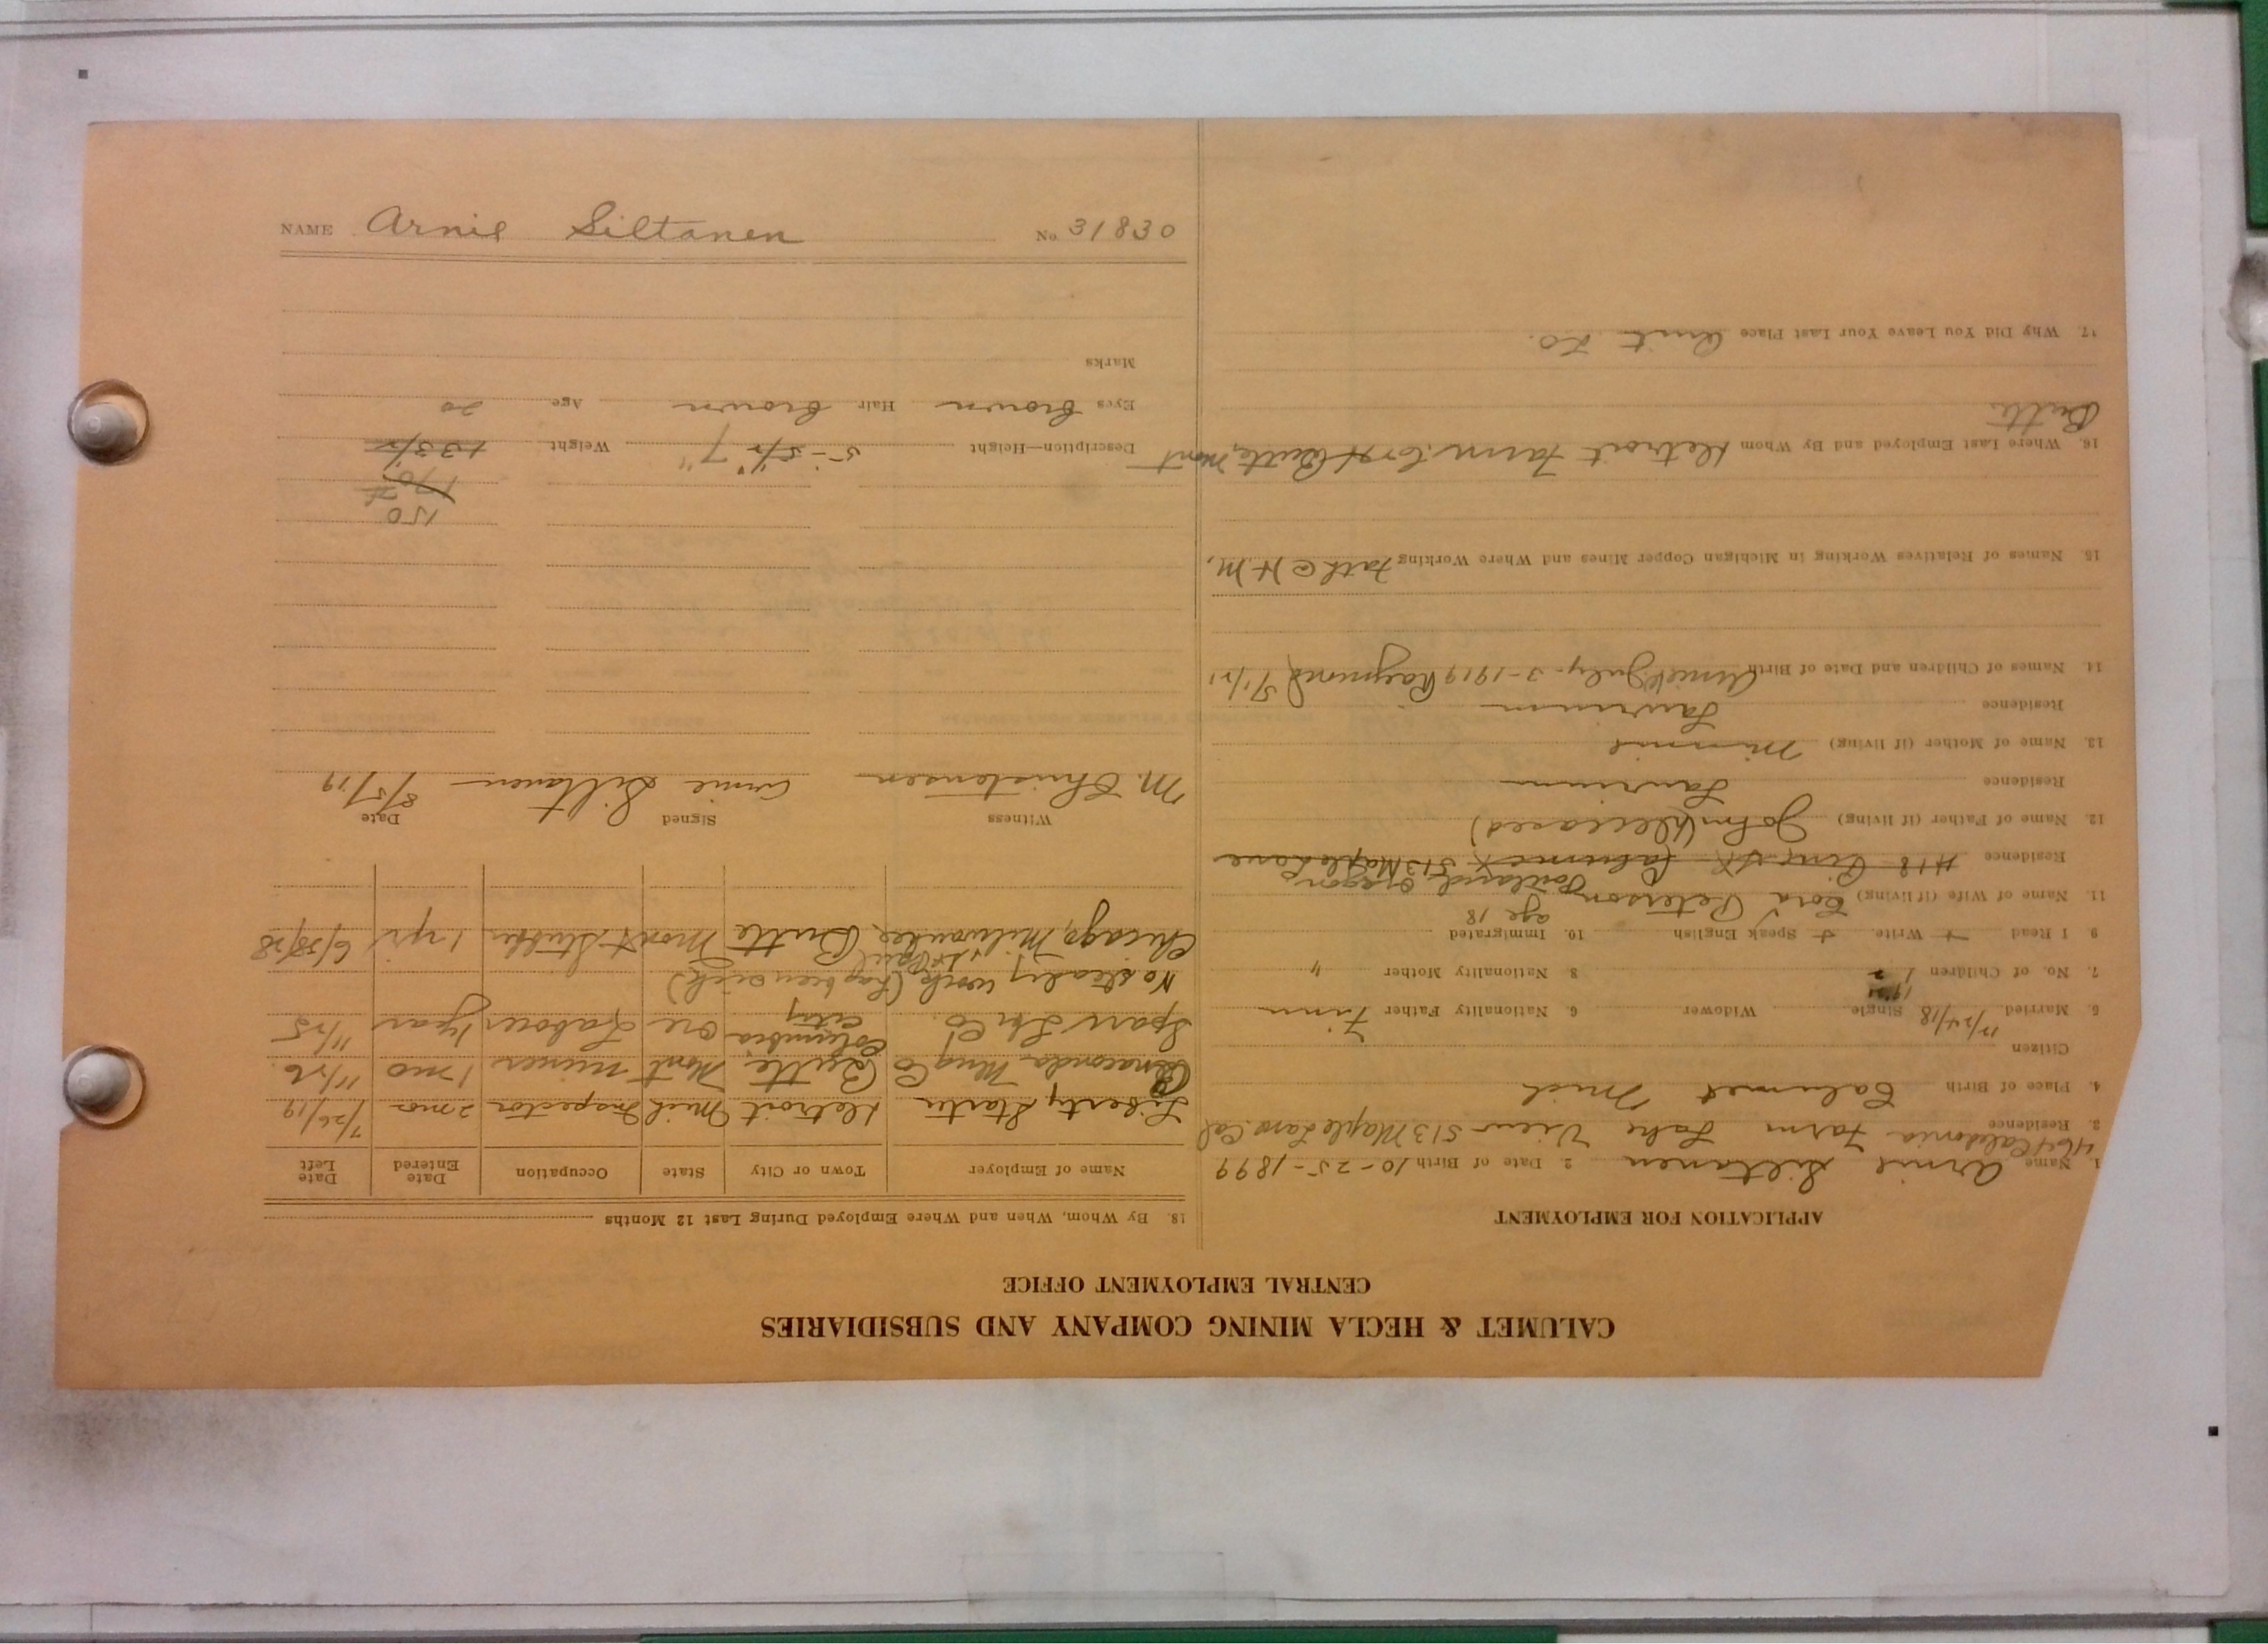 CALUMET & HECLA MINING COMPANY AND SUBSIDIARIES
CENTRAL EMPLOYMENT OFFICE
APPLICATION FOR EMPLOYMENT
1. Name Arnie Siltanen 2. Date of Birth 10-25-1899
464 Caledonia
3. Residence Farm Lake View 513 Maple Lane. Cal
4. Place of Birth Calumet Mich
Citizen
5. Married 12/24/18 Single Widower 6. Nationality Father Finn
7. No. of Children 8 Nationality Mother "
9 I Read + Write + Speak English 10. Immigrated
age 18
11. Name of Wife (if living) Cora Peterson Portland, Oregon
Residence 418 Pine St Calumet 513 Maple Lane
12. Name of Father (if living) John (deceased)
Residence Laurium
13. Name of Mother (if living) Minnie
Residence Laurium
14. Names of Children and Date of Birth July-3-1919 Raymond 5/1/21
15. Names of Relatives Working in Michigan Copper Mines and Where Working Fath @ H M,
16. Where Last Employed and By Whom Detroit Butte, Mont
Butte
17. Why Did You Leave Your Last Place Quit
18. By Whom, When and Where Employed During Last 12 Months
Name of Employer Town or City State Occupation Date Entered Date Left
Liberty Starter Detroit Mich Inspector 2 mos 7/26/19
Anaconda Mng Co Butte Mont miner 1 mo 11/26.
Spare Co. Columbia City Ore Labour 1 year 11/25
No steady work (has been sick)
Chicago, Milwaukee, & St Paul Butte Mont 1 yr.
Witness Signed Date
M. Christensen Arnie Siltanen 8/5/19
150
170 #
Description—Height 5- 5 1/2" 7" Weight 133 1/2
Eyes Brown Hair Brown Age 20
Marks
NAME Arnie Siltanen No 31830